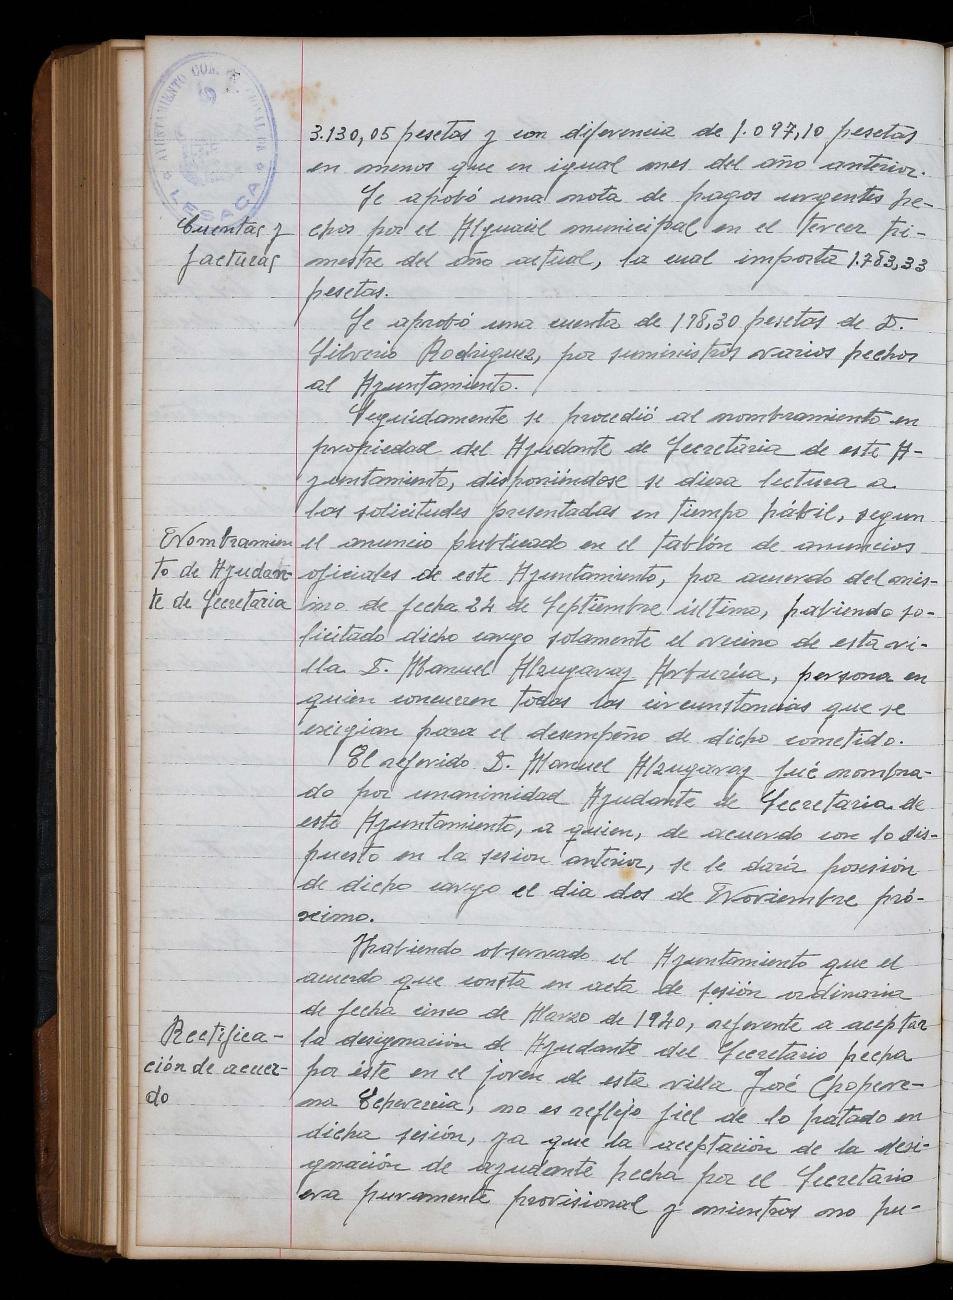 AYUNTAMIENTO CONSTITUCIONAL DE
LESACA
3.130,05 pesetas y con diferencia de 1.097,10 pesetas
en menos que en igual mes del año anterior.
Cuentas y
facturas
Se aprobó una nota de pagos urgentes he-
chos por el Alguacil municipal en el tercer tri-
mestre del año actual, la cual importa 1.783,33
pesetas.
Se aprobó una cuenta de 178,30 pesetas de D.
Silverio Rodriguez, por suministros varios hechos
al Ayuntamiento.
Nombramien
to de Ayudan-
te de Secretaria
Seguidamente se procedió al nombramiento en
propiedad del Ayudante de Secretaria de este A-
yuntamiento, disponiéndose se diera lectura a
las solicitudes presentadas en tiempo hábil, segun
el anuncio publicado en el tablón de anuncios
oficiales de este Ayuntamiento, por acuerdo del mis-
mo de fecha 24 de Septiembre último, habiendo so-
licitado dicho cargo solamente el vecino de esta vi-
lla D. Manuel Alzugaray, persona en
quien concurren todas las circunstancias que se
exigian para el desempeño de dicho cometido.
El referido D. Manuel Alzugaray fué nombra-
do por unanimidad Ayudante de Secretaria de
este Ayuntamiento, a quien, de acuerdo con lo dis-
puesto en la sesion anterior, se le dará posesión
de dicho cargo el dia dos de Noviembre pró-
ximo.
Rectifica-
ción de acuer-
do
Habiendo observado el Ayuntamiento que el
acuerdo que consta en acta de sesión ordinaria
de fecha cinco de Marzo de 1940, referente a aceptar
la designación de Ayudante del Secretario hecha
por éste en el joven de esta villa José Chopere-
na Echeverria, no es reflejo fiel de lo tratado en
dicha sesión, ya que la aceptación de la desi-
gnación de ayudante hecha por el Secretario
era puramente provisional y mientras no pu-